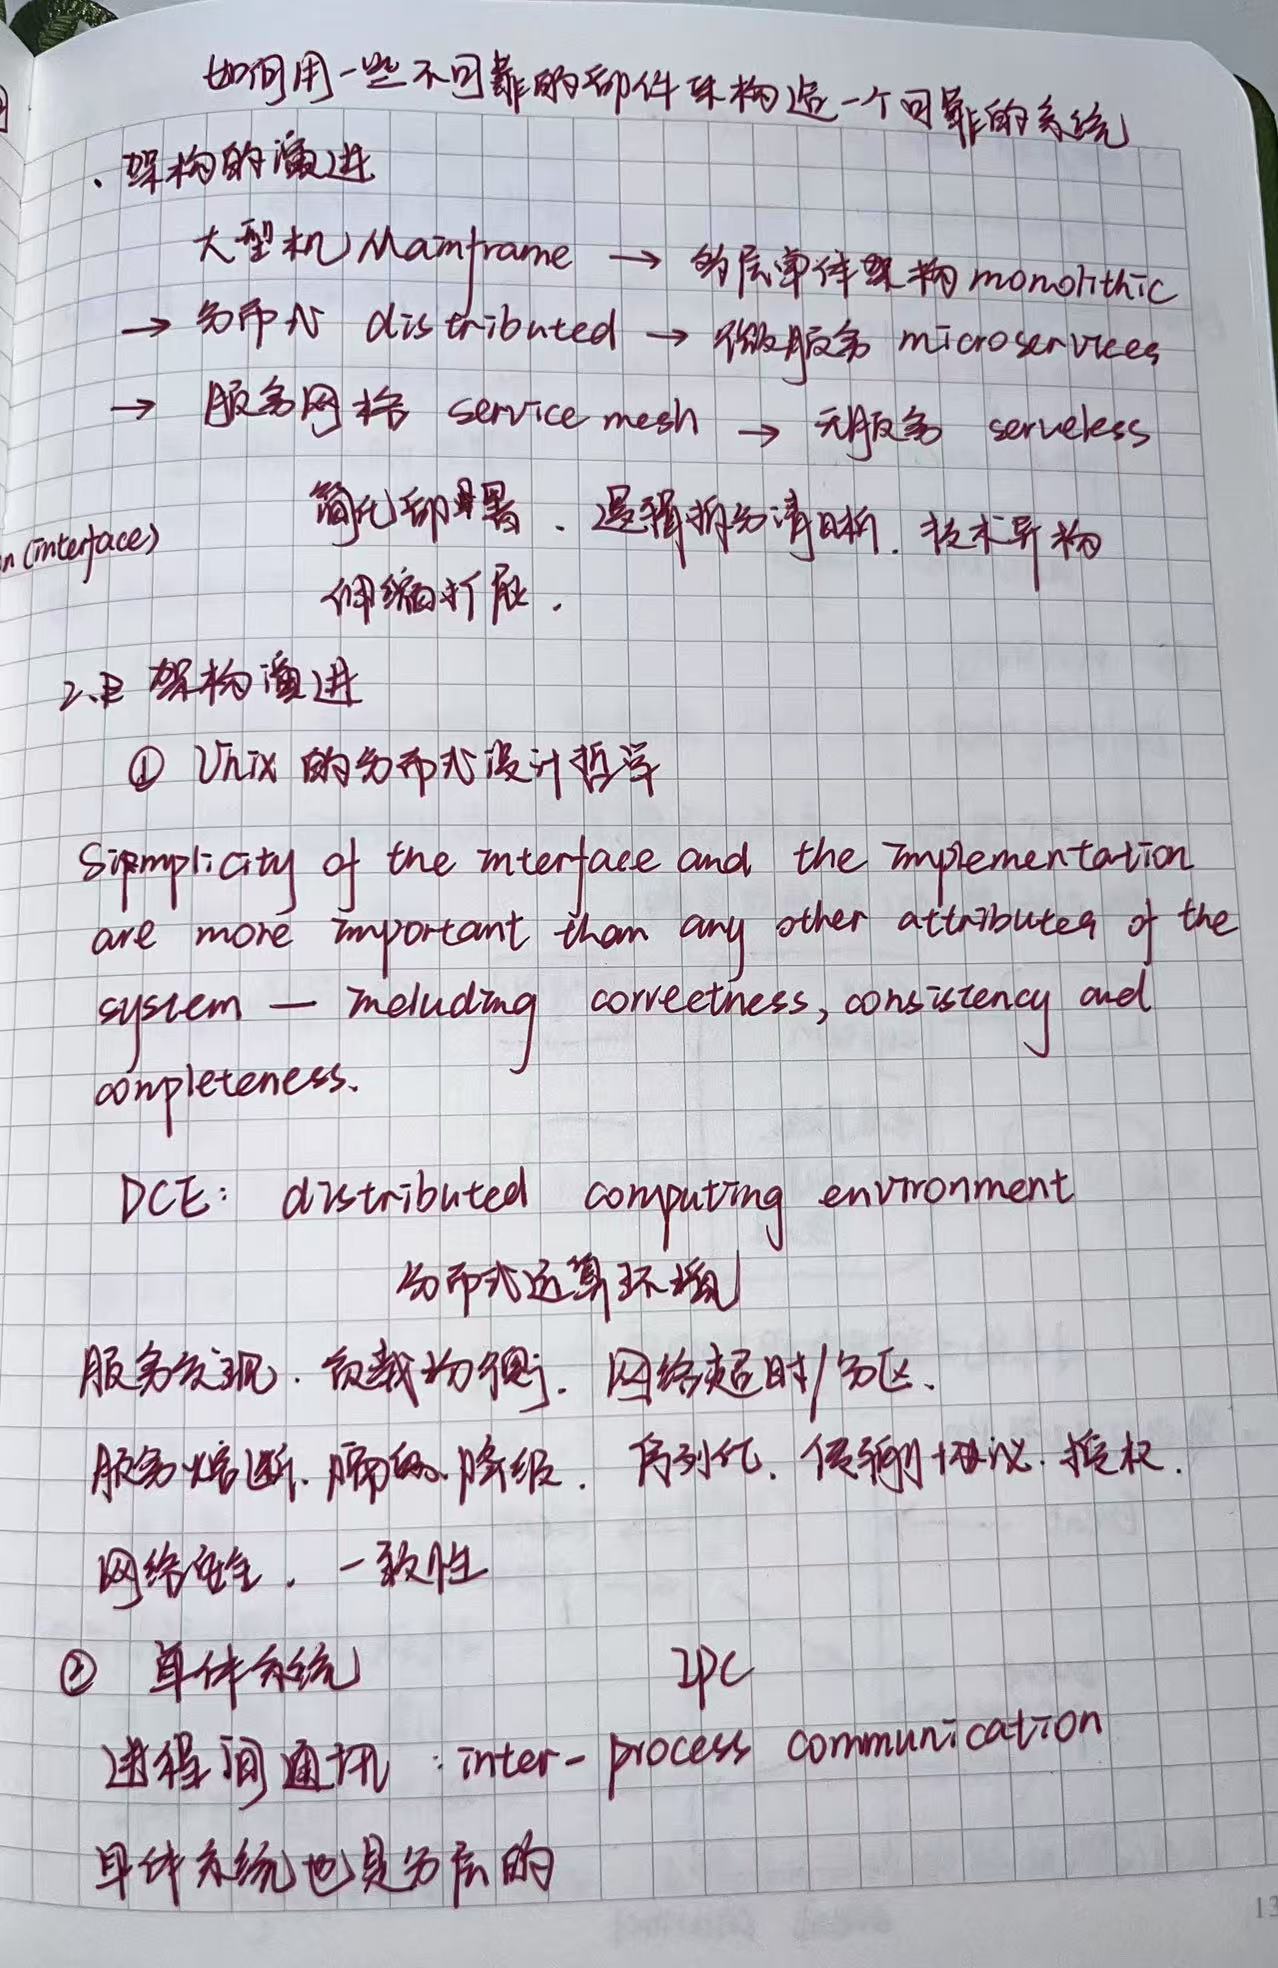 如何用一些不可靠的部件来构造一个可靠的系统
、架构的演进
大型机 Mainframe → 的层单体架构 monolithic
→ 分布式 distributed → 微服务 microservices
→ 服务网格 service mesh → 无服务 serveless
n (interface)
简化部署、逻辑拆分清晰、技术异构
伸缩扩展.
2. 架构演进
① Unix 的分布式设计哲学
Simplicity of the interface and the implementation
are more important than any other attributes of the
system — including correctness, consistency and
completeness.
DCE: distributed computing environment
分布式运算环境
服务发现、负载均衡、网络超时/分区、
服务熔断、隔离、降级、序列化、传输协议、授权、
网络安全、一致性
② 单体系统 IPC
进程间通讯:inter-process communication
单体系统也是分层的
13